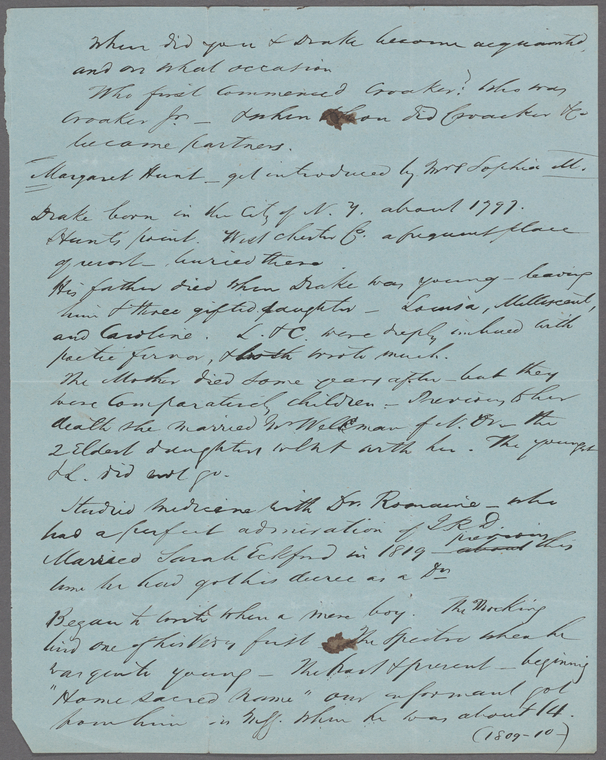 When did you & Drake become acquainted,
and on what occasion
Who first commenced Croaker? Who was
Croaker Jr. — & when & how did Croaker & Co
become partners.
Margaret Hunt — get introduced by Mrs Sophia M.
Drake born in the City of N. Y. about 1797.
Hunts point. West chester Co. a frequent place
of resort buried there
His father died when Drake was young — leaving
him & three gifted daughters — Louisa, Millescent,
and Caroline. L. & C. were deeply imbued with
poetic fervor, & both wrote much.
The Mother died some years after — but they
were comparatively children — Previous to her
death she married Mr Wellman of N. Orn the
2 Eldest daughters went with her. The youngest
& L. did not go.
Studied medicine with Dr. Romaine — who
had a perfect admiration of J. R. D.
Married Sarah Eckford in 1819 — about previous this
time he had got his decree as a Dr.
Began to write when a mere boy. The Mocking
bird one of his very first The Spectre when he
was quite young — The past & present — beginning
"Home sacred name" our informant got
from him in Mss. when he was about 14.
(1809-10-)